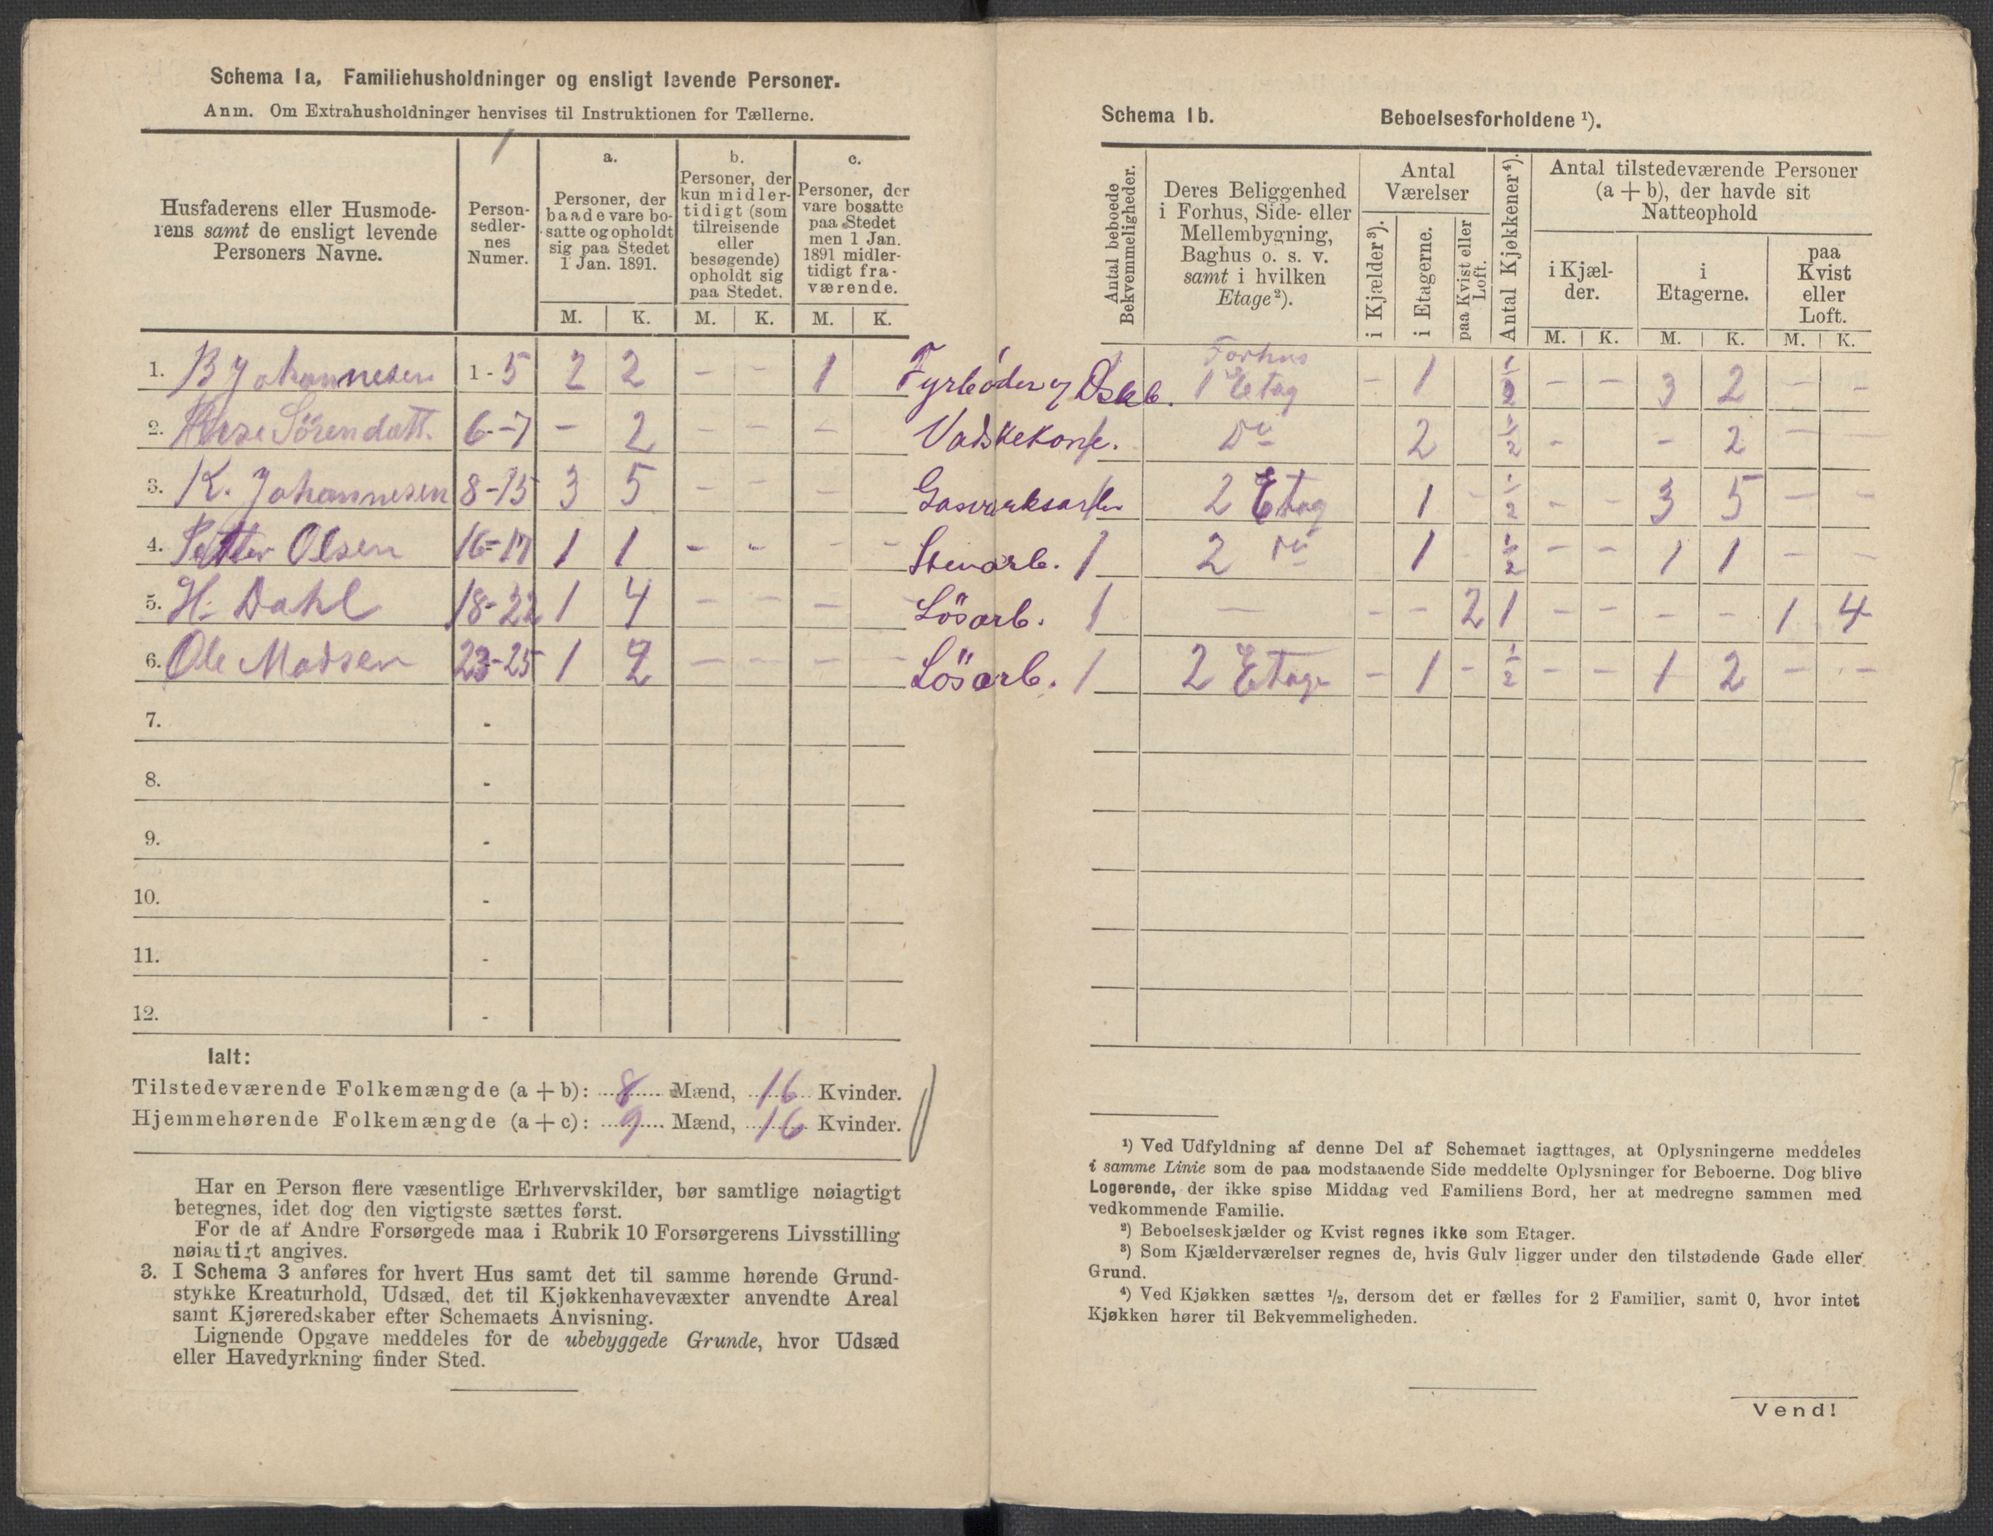 Schema 1a, Familiehusholdninger og ensligt levende Personer.
Anm. Om Extrahusholdninger henvises til Instruktionen for Tællerne.
Husfaderens eller Husmode-
rens samt de ensligt levende
Personers Navne.
Person-
sedler-
nes
Numer.
a.
Personer, der
baade vare bo-
satte og opholdt
sig paa Stedet
1 Jan. 1891.
M. K.
b.
Personer, der
kun midler-
tidigt (som
tilreisende
eller
besøgende)
opholdt sig
paa Stedet.
M. K.
c.
Personer, der
vare bosatte
paa Stedet
men 1 Jan.
1891 midler-
tidigt fra-
værende.
M. K.
1. B Johannesen 1-5 2 2 - - 1 Fyrbøder
2. Sörendatt. 6-7 - 2 - - - Vadskekone.
3. K. Johannesen 8-15 3 5 - - - Gasværksarb
4. Petter Olsen 16-17 1 1 - - - - Stenarb.
5. H. Dahl 18-22 1 4 - - - - Lösarb.
6. Ole Madsen 23-25 1 2 - - - - Lösarb.
7. -
8. -
9. -
10. -
11. -
12. -
Ialt:
Tilstedeværende Folkemængde (a + b): 8 Mænd, 16 Kvinder.
Hjemmehørende Folkemængde (a + c): 9 Mænd, 16 Kvinder.
Har en Person flere væsentlige Erhvervskilder, bør samtlige nøiagtigt
betegnes, idet dog den vigtigste sættes først.
For de af Andre Forsørgede maa i Rubrik 10 Forsørgerens Livsstilling
nøiagtigt angives.
3. I Schema 3 anføres for hvert Hus samt det til samme hørende Grund-
stykke Kreaturhold, Udsæd, det til Kjøkkenhavevæxter anvendte Areal
samt Kjøreredskaber efter Schemaets Anvisning.
Lignende Opgave meddeles for de ubebyggede Grunde, hvor Udsæd
eller Havedyrkning finder Sted.
Schema 1b. Beboelsesforholdene ¹).
Antal beboede
Bekvemmeligheder.
Deres Beliggenhed
i Forhus, Side- eller
Mellembygning,
Baghus o. s. v.
samt i hvilken
Etage ²).
Antal
Værelser
i Kjælder ³).
i Etagerne.
paa Kvist eller
Loft.
Antal Kjøkkener ⁴).
Antal tilstedeværende Personer
(a + b), der havde sit
Natteophold
i Kjæl-
der.
M. K.
i
Etagerne.
M. K.
paa
Kvist
eller
Loft.
M. K.
Forhus
1 Etag - 1 ½ - - 3 2 - -
1 Do 2 ½ - - 2 - -
2 Etag 1 - ½ - - 3 5 - -
1 2 Do 1 ½ - - 1 1 - -
1 - - - 2 1 - - - - 1 4
1 2 Etage - 1 - ½ - - 1 2 - -
¹) Ved Udfyldning af denne Del af Schemaet iagttages, at Oplysningerne meddeles
i samme Linie som de paa modstaaende Side meddelte Oplysninger for Beboerne. Dog blive
Logerende, der ikke spise Middag ved Familiens Bord, her at medregne sammen med
vedkommende Familie.
²) Beboelseskjælder og Kvist regnes ikke som Etager.
³) Som Kjælderværelser regnes de, hvis Gulv ligger under den tilstødende Gade eller
Grund.
⁴) Ved Kjøkken sættes ½, dersom det er fælles for 2 Familier, samt 0, hvor intet
Kjøkken hører til Bekvemmeligheden.
Vend!